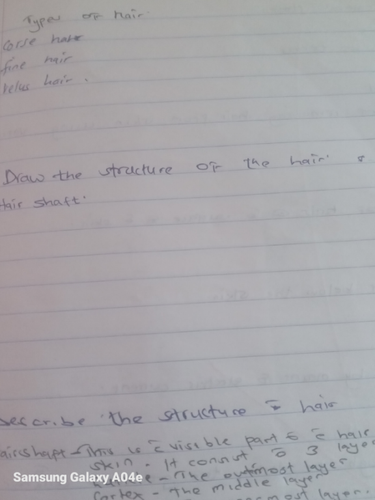 Types of hair
Corse hair
fine hair
velus hair.
Draw the structure of the hair &
Hair shaft.
Describe the structure & hair
airshaft - This is c visible part & c hair
skin - It consist & 3 layer
- The outmost layer
Cortex - The middle layer
most layer.
Samsung Galaxy A04e